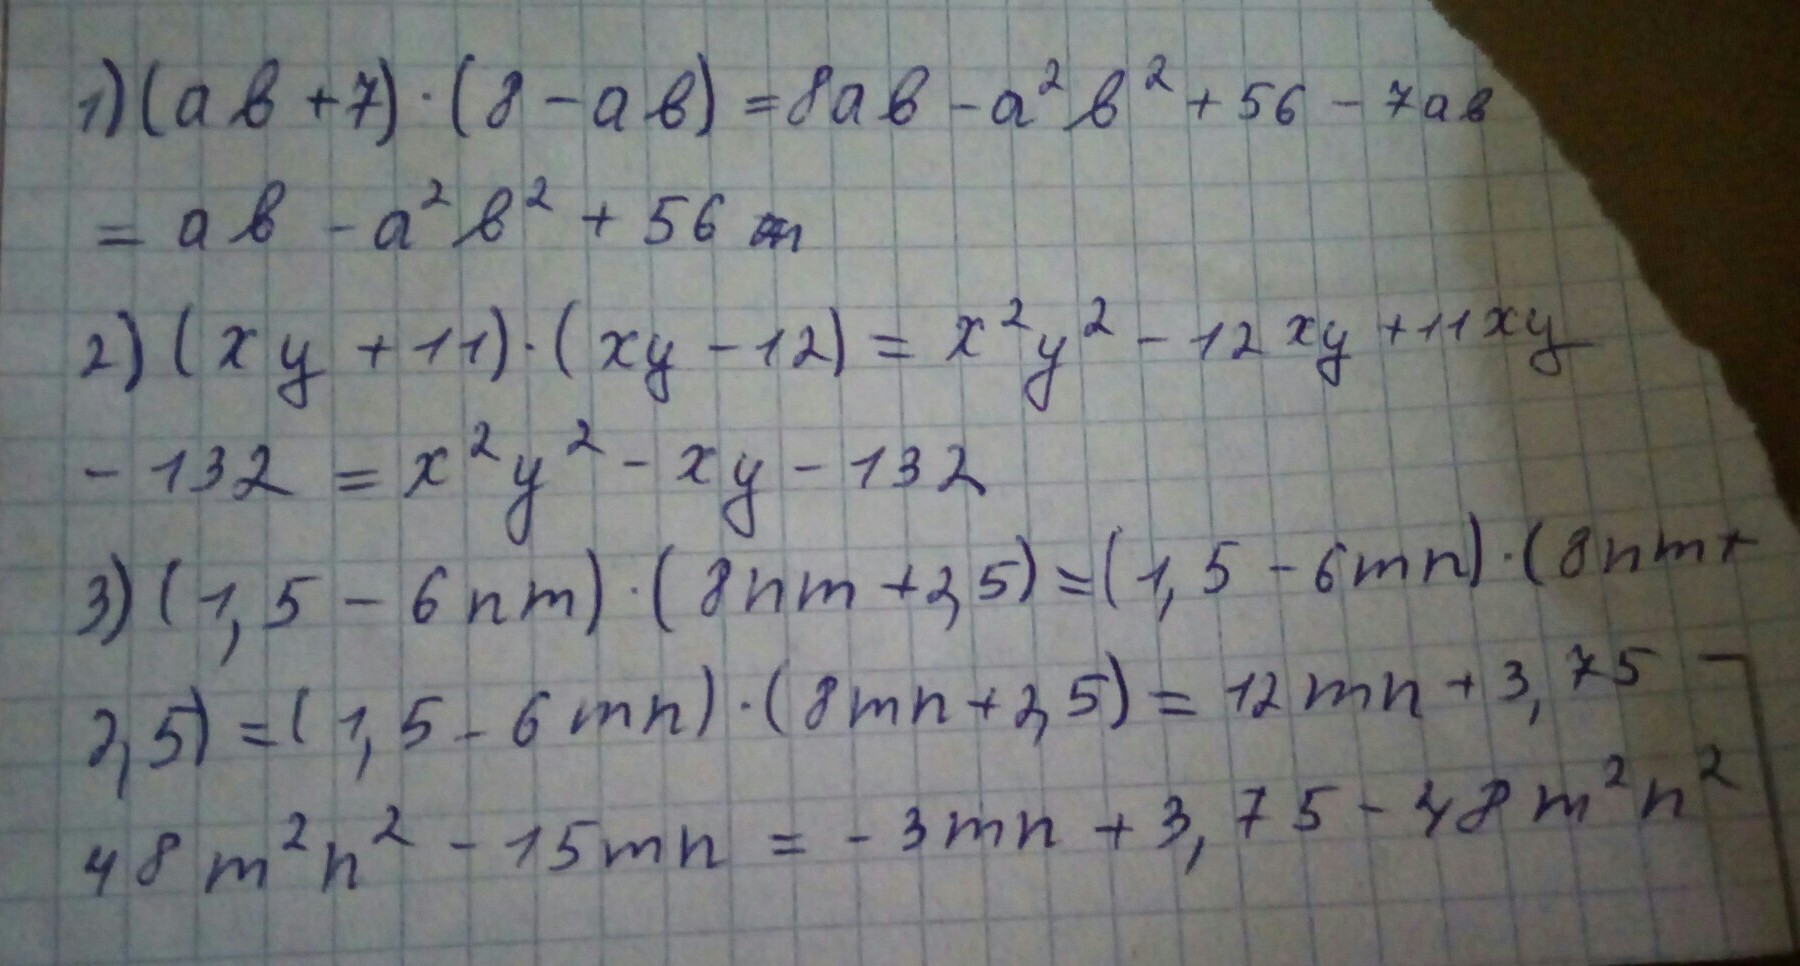 1) (ab + 7) · (8 - ab) = 8ab - a²b² + 56 - 7ab
= ab - a²b² + 56
2) (xy + 11) · (xy - 12) = x²y² - 12xy + 11xy
- 132 = x²y² - xy - 132
3) (1,5 - 6nm) · (8nm + 2,5) = (1,5 - 6mn) · (8nm +
2,5) = (1,5 - 6mn) · (8mn + 2,5) = 12mn + 3,75 -
48m²n² - 15mn = -3mn + 3,75 - 48m²n²